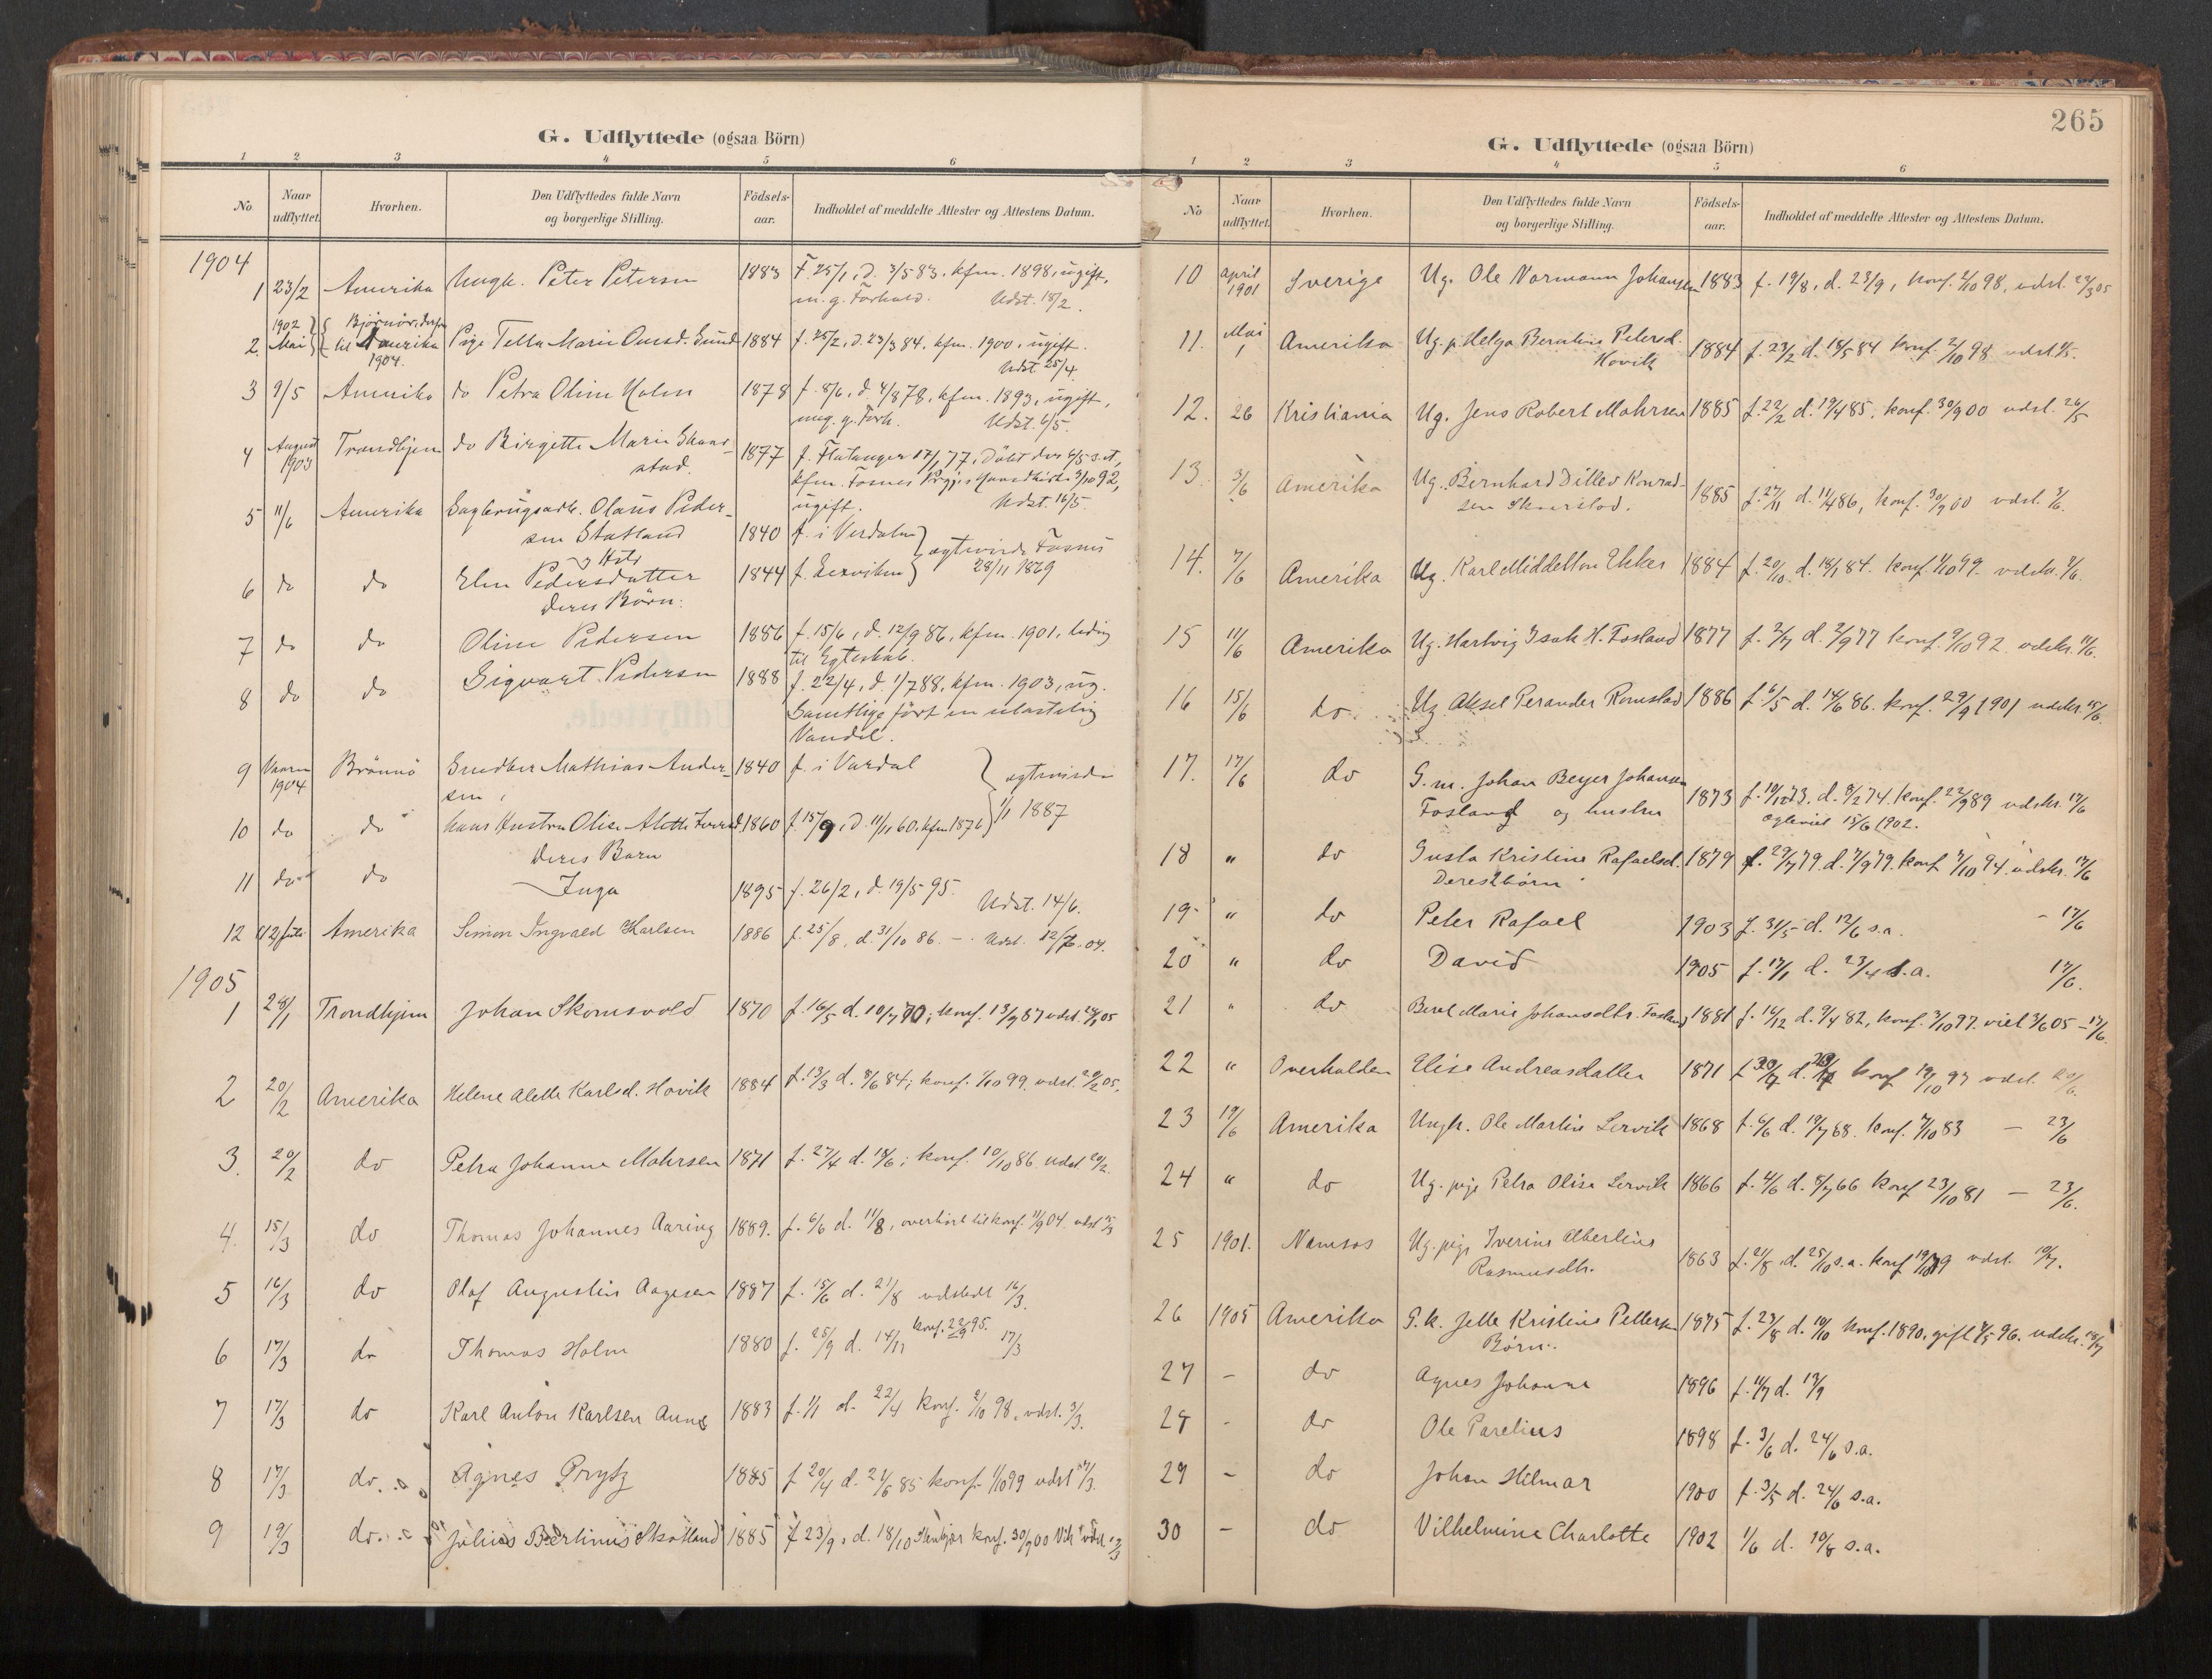 G. Udflyttede (ogsaa Börn)
1 2 3 4 5 6
No Naar udflyttet. Hvorhen. Den Udflyttedes fulde Navn og borgerlige Stilling. Födsels-aar. Indholdet af meddelte Attester og Attestens Datum.
1904
1 23/2 Amerika Ungk. Peter Petersen 1883 F. 25/1, d. 3/5 83, kfm. 1898, ugift,
m. g. Forhold. Udst. 18/2.
1902 Mai Bjørnör, derfra
2. til Amerika 1904. Pige Tella Marie Olusd. Sund 1884 f. 25/2, d. 23/3 84, kfm. 1900, ugift.
Udst. 25/4
3 9/5 Amerika do Petra Oline Holm 1878 f. 8/6, d. 4/8 78, kfm. 1893, ugift,
meg. g. Forh. Udst. 6/5.
4 August 1903 Trondhjem do Birgitte Marie Skaar-
stad. 1877 f. Flatanger 17/1 77, Döbt der 6/5 s.A,
kfm. Fosnes 2/10 92,
ugift. Udst. 16/5.
5 11/6 Amerika Sagbrugsarb. Olaus Peder-
sen Statland 1840 f. i Verdalen
og Hstr
6 do do Elen Pedersdatter 1844 f. Lexviken } egteviede Fosnes 28/11 1869
deres Börn:
7 do do Oline Pedersen 1886 f. 15/6, d. 12/9 86, kfm. 1901, ledig
til Egteskab.
8 do do Sigvart Pedersen 1888 f. 22/4, d. 1/7 88, kfm. 1903, ug.
Samtlige fört en ulastelig
Vandel.
9 Vaaren 1904 Brönnö Smedker Mathias Ander-
sen, 1840 f. i Vardal } egteviede
10 do do hans Hustru Olise Alette 1860 f. 15/9, d. 11/11 60, kfm 1876 1/1 1887
Deres Barn
11 do do Inga 1895 f. 26/2, d. 19/5 95.
Udst. 14/6.
12 12 juli Amerika Simon Ingvald Karlsen 1886 f. 25/8, d. 31/10 86. — Udst. 12/7. 04.
1905
1 28/1 Trondhjem Johan Skomsvold 1870 f. 16/5 d. 10/7 70; konf. 13/7 87 udst. 28/1 05
2 20/2 Amerika Helene Alette Karlsd. Hovik 1884 f. 13/3 d. 8/6 84; konf. 1/10 99 udst. 20/2 05.
3. 20/2 do Petra Johanne Mohrsen 1871 f. 27/4 d. 18/6; konf. 10/10 86 udst 20/2.
4. 15/3 do Thomas Johannes Aaring 1889. f. 6/6 d. 11/8, overhört til konf. 11/9 04. udst 15/3
5 16/3 do Olaf Augustin Aagesen 1887 f. 15/6 d. 21/8 udstedt 16/3.
6 17/3 do Thomas Holm 1880 f. 25/9 d. 14/11 konf. 22/9 95. 17/3
7 17/3 do Karl Anton Karlsen Aune 1883 f. 1/1 d. 22/4 konf. 2/10 98, udst. 3/3.
8 17/3 do. Agnes Prytz 1885 f 20/4 d. 21/6 85 konf. 1/10 99 udst 17/3.
9 19/3 do. Julius Bertinus Skotland 1885 f 23/9, d. 18/10 Stenkjær konf. 30/9 00 Vik udst.
265
G. Udflyttede (ogsaa Börn)
1 2 3 4 5 6
No Naar udflyttet. Hvorhen. Den Udflyttedes fulde Navn og borgerlige Stilling. Födsels-aar. Indholdet af meddelte Attester og Attestens Datum.
10 april 1901 Sverige Ug. Ole Normann Johansen 1883 f. 19/8, d. 23/9, konf. 2/10 98, udst. 27/3 05
11. Mai 1 Amerika Ug. p. Helga Berntine Petersd.
Hovik 1884 f. 23/2 d. 18/5 84 konf. 2/10 98 udst. 1/5.
12. 26 Kristiania Ug. Jens Robert Mohrsen 1885 f. 22/2 d. 19/4 85. konf. 30/9 00 udst. 26/5
13. 3/6 Amerika Ug. Bernhard Ditlev Konrad-
sen Skaerstad. 1885 f. 27/11 d. 11/4 86, konf. 30/9 00 udst. 3/6.
14. 7/6 Amerika Ug. Karl Middelthon Ekker 1884 f. 20/10 d. 18/1 84. konf. 1/10 99. udstr. 7/6.
15 11/6 Amerika Ug. Hartvig Isak H. Fosland 1877 f. 2/7 d. 2/9 77 konf. 9/10 92 udstr. 11/6.
16 15/6 do. Ug. Aksel Perander Romstad 1886 f 6/5 d. 14/6 86. konf. 29/9 1901 udstr. 15/6.
17. 17/6 do G. m. Johan Beyer Johansen
Fosland og hustru 1873 f. 10/12 73. d. 8/2 74. konf. 22/9 89 udstr. 17/6
egteviet 15/6 1902.
18 " do Gusta Kristine Rafaelsd. 1879 f. 29/7 79 d. 7/9 79. konf 7/10 94. udstr. 17/6
Deres börn
19 " do Peter Rafael 1903 f. 31/5 d. 12/6 s.a. - 17/6
20 " do David 1905 f. 17/1 d. 23/4 s.a. 17/6.
21 " do Beret Marie Johansdtr. Fosland 1881 f. 16/12 d. 9/4 82, konf. 3/10 97. viet 3/6 05 - 17/6.
22 " Overhalden Elise Andreasdatter 1871 konf 19/10 97 udst.
23 19/6 Amerika Ungk. Ole Martin Servik 1868 f. 6/6 d. 19/7 68. konf. 7/10 83 — 23/6
24 " do Ug. pige Petra Olise Servik 1866 f. 4/6 d. 8/7 66 konf 23/10 81 — 23/6.
25 1901. Namsos Ug. pige Iverine Albertine
Rasmusdtr. 1863 f. 21/8, d. 25/10 s.a. konf udst. 10/7.
26 1905 Amerika G. k. Jette Kristine Pettersen 1875 f. 23/8 d. 10/10 konf. 1890, gift 96. udstr. 18/7
Börn.
27 - do Agnes Johanna 1896 f. 11/7 d. 13/9
28 - do Ole Parelius 1898 f. 3/6 d. 24/6 s.a.
29 - do Johan Hilmar 1900 f. 3/5 d. 24/6 s.a.
30 - do Vilhelmine Charlotte 1902 1/6 d. 10/8 s.a.